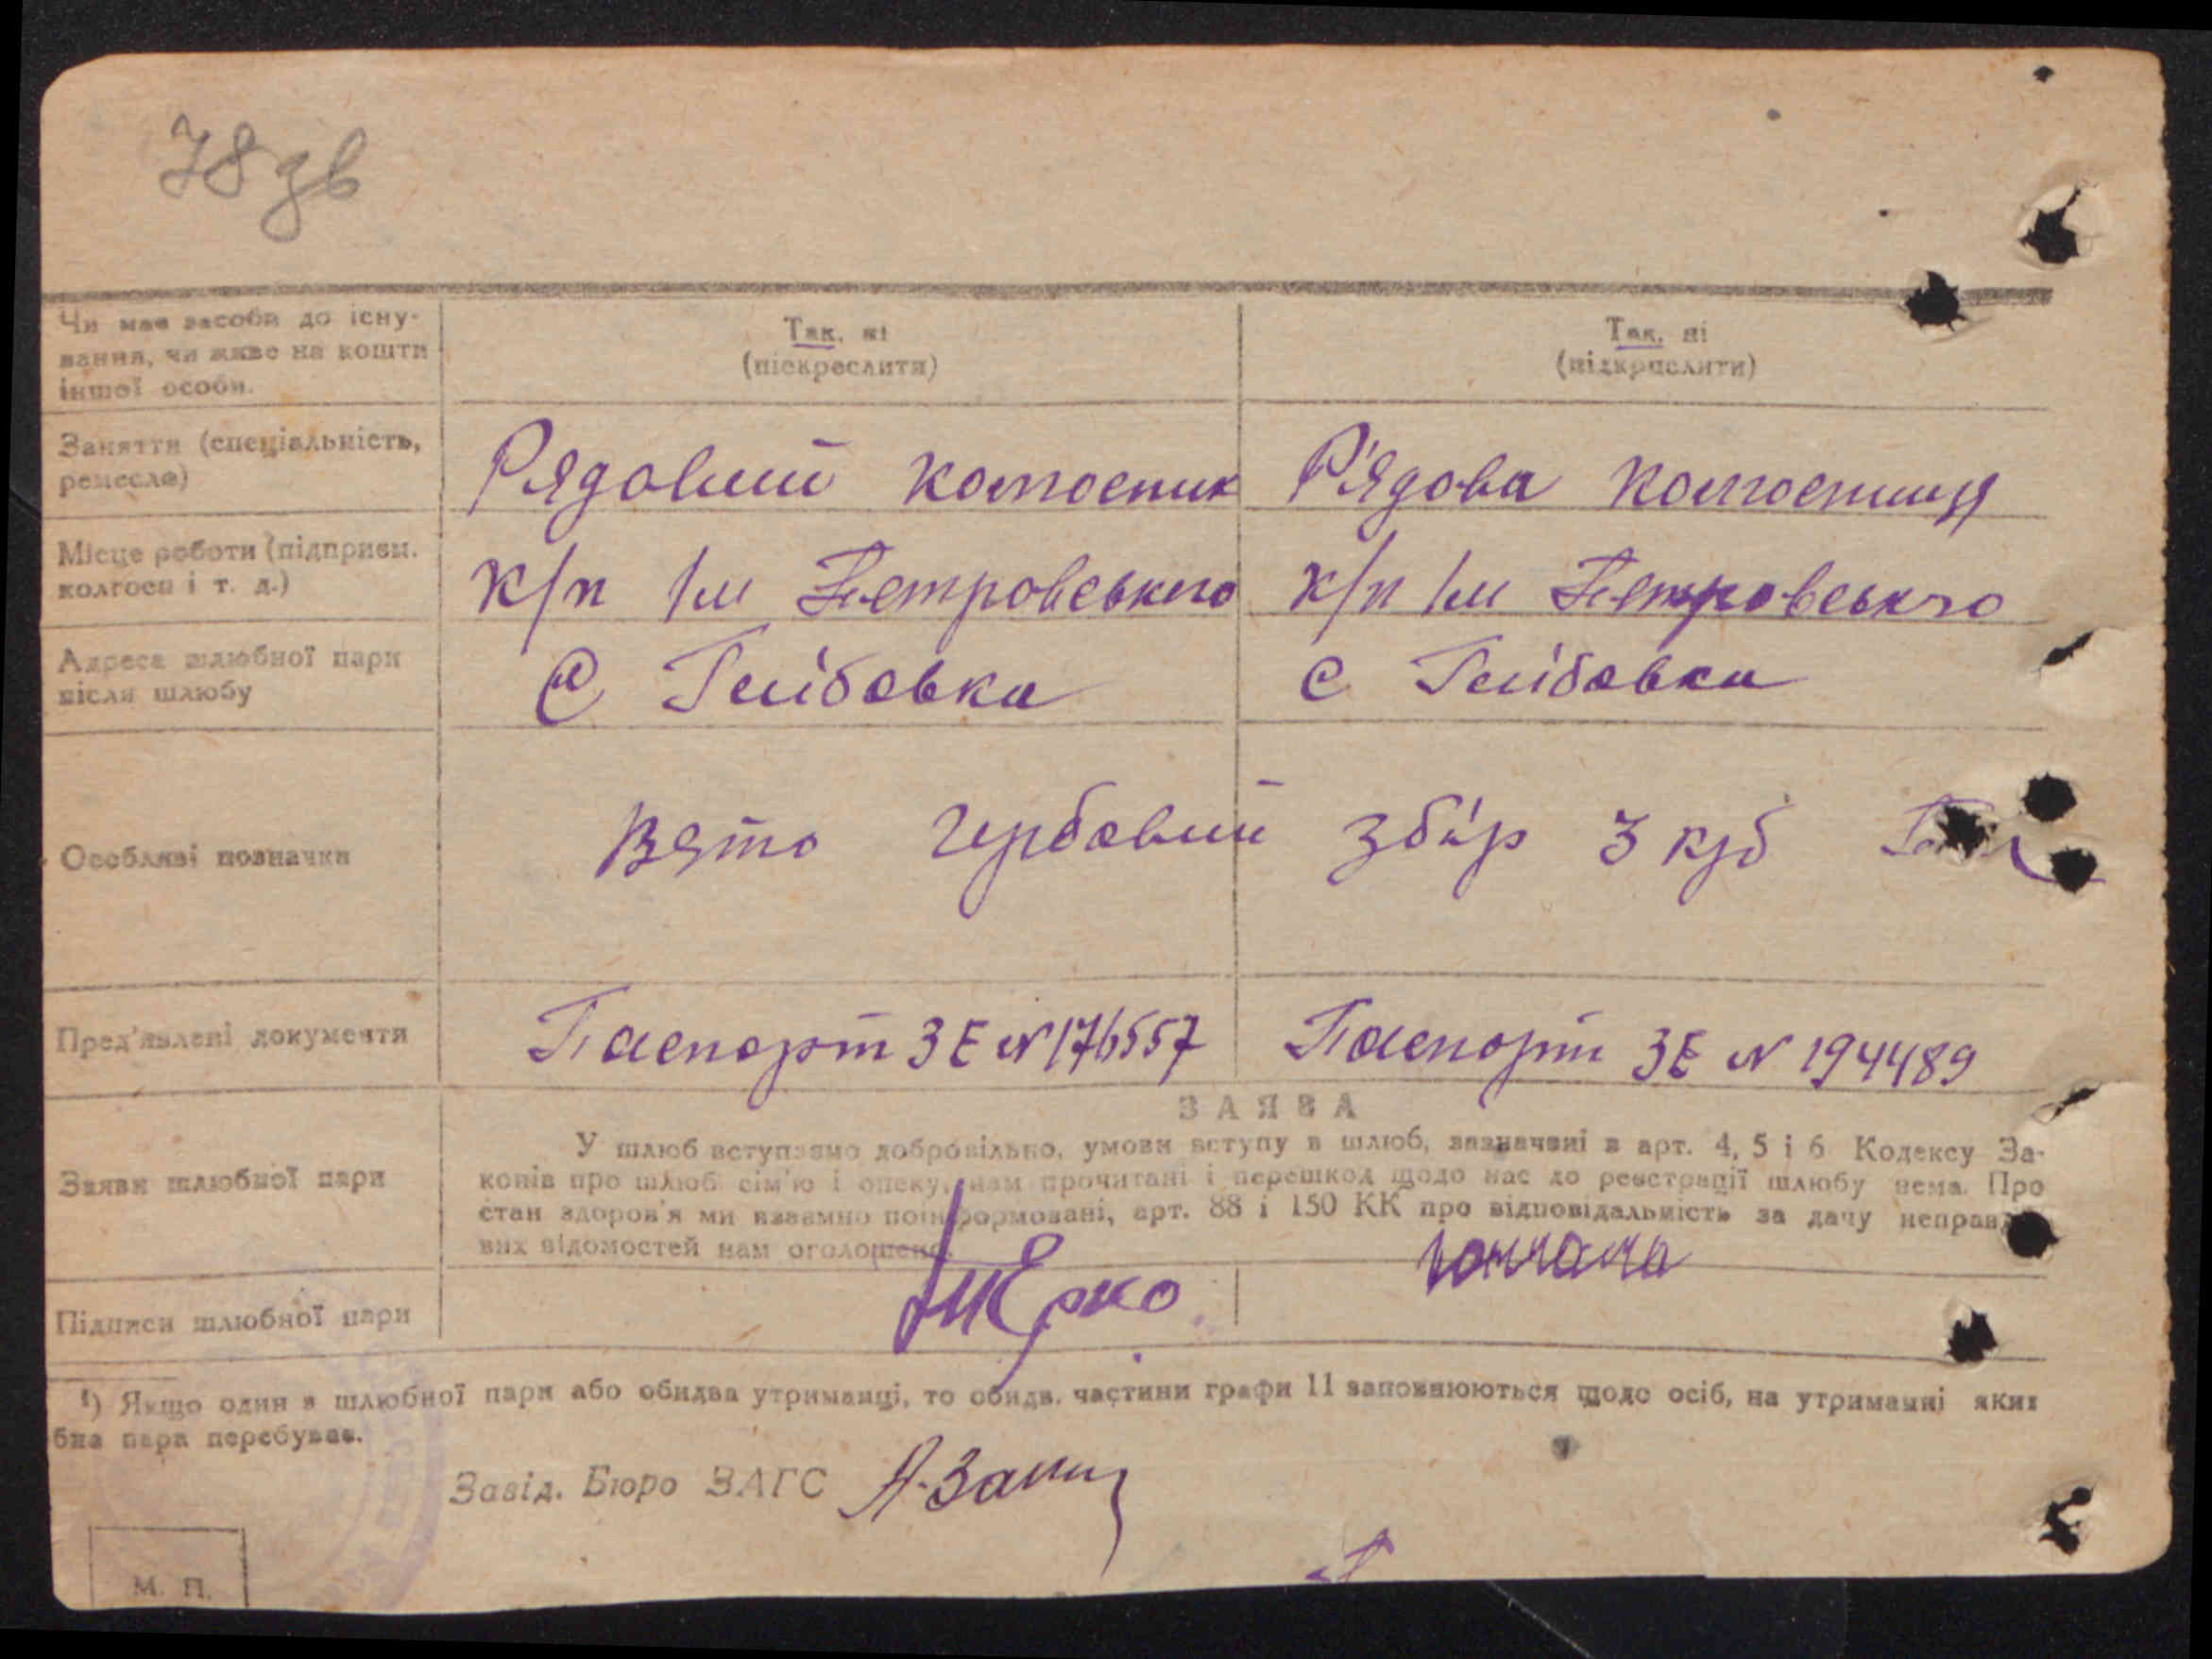 78 зв
Чи має засоби до існу-
вання, чи живе на кошти
іншої особи.
Так, ні
(піскреслити)
Так, ні
(підкрислити)
Заняття (спеціальність,
ремесло)
Рядовий колгоспник
Р'ядова колгоспниця
Місце роботи (підприєм.
колгосп і т. д.)
к/п Ім Петровського
к/п Ім Петровського
Адреса шлюбної пари
після шлюбу
С Глібовка
с Глібовка
Особливі позначки
Взято гербовий збір 3 крб
Пред'явлені документи
Паспорт ЗЕ № 176557
Паспорт ЗЕ № 194489
ЗАЯВА
Заяви шлюбної пари
У шлюб вступаємо добровільно, умови вступу в шлюб, зазначені в арт. 4, 5 і 6 Кодексу За-
конів про шлюб сім'ю і опеку, нам прочитані і перешкод щодо нас до реєстрації шлюбу нема. Про
стан здоров'я ми взаємно поінформовані, арт. 88 і 150 КК про відповідальність за дачу неправд
вих відомостей нам оголошено.
Підписи шлюбної пари
¹) Якщо один з шлюбної пари або обидва утриманці, то обидв. частини графи 11 заповнюються щодо осіб, на утриманні яких
бна пара перебуває.
Завід. Бюро ЗАГС
М. П.